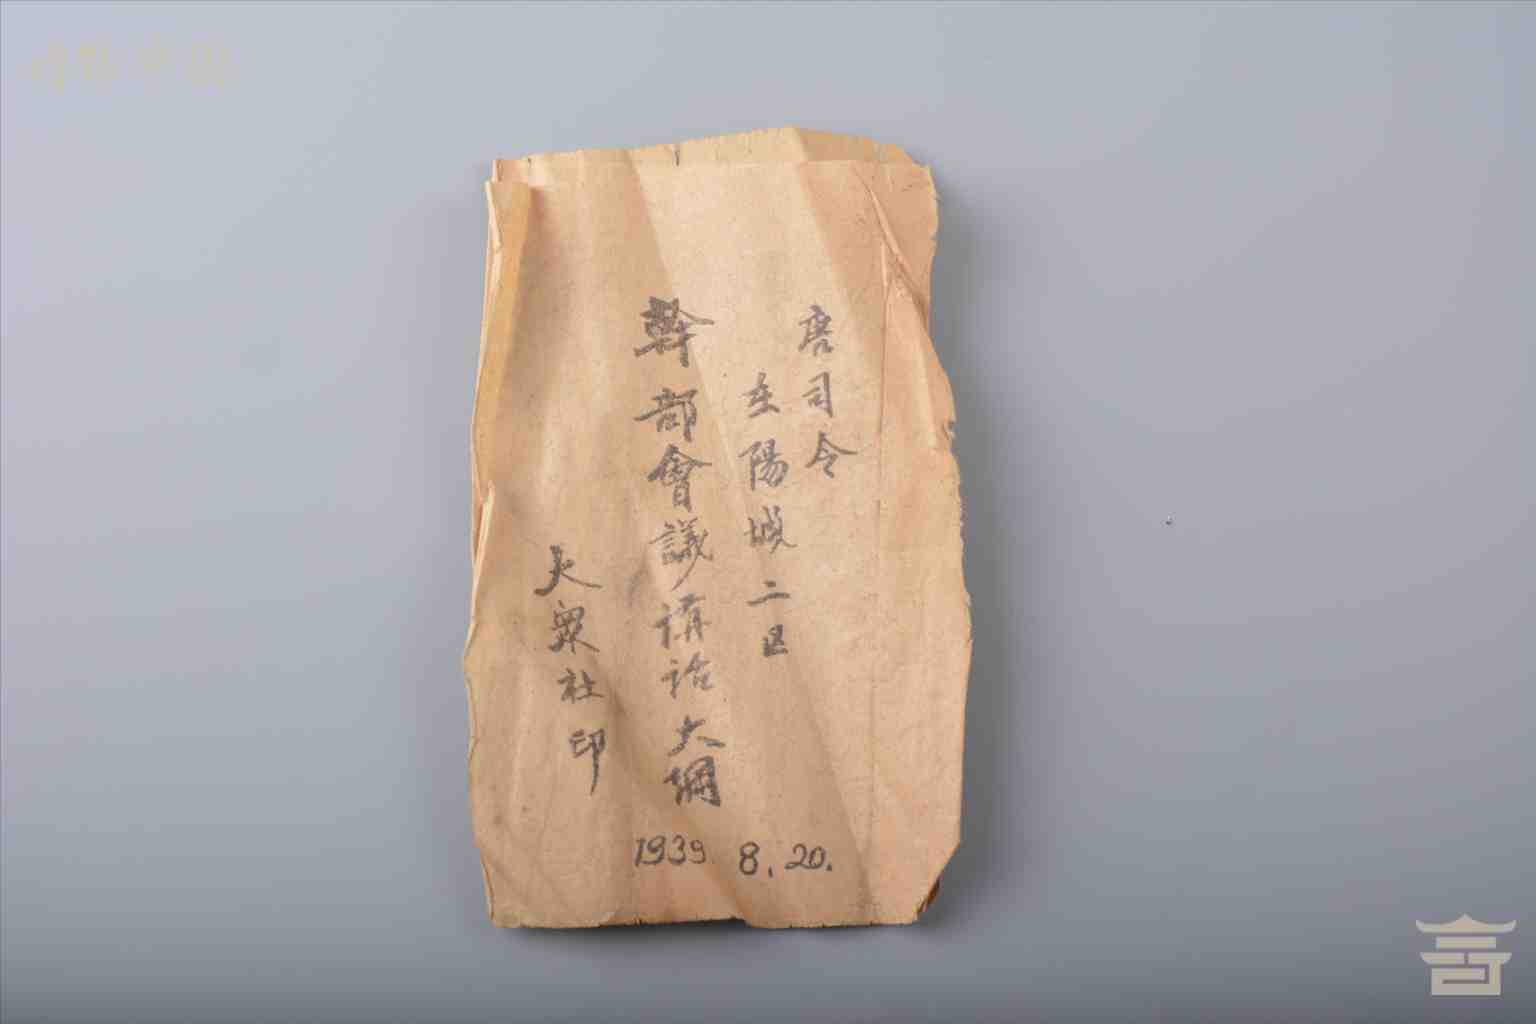 唐司令
在陽城二区
幹部會議講话大綱
大衆社印
1939. 8. 20.